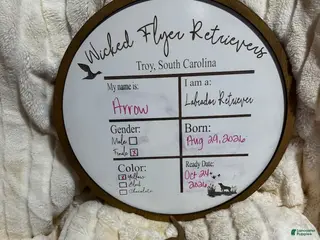 Wicked Flyer Retrievers
Troy, South Carolina
My name is:
Arrow
I am a:
Labrador Retriever
Gender:
Male
Female
Born:
Aug 29, 2026
Color:
Yellow
Black
Chocolate
Ready Date:
Oct 24
2026